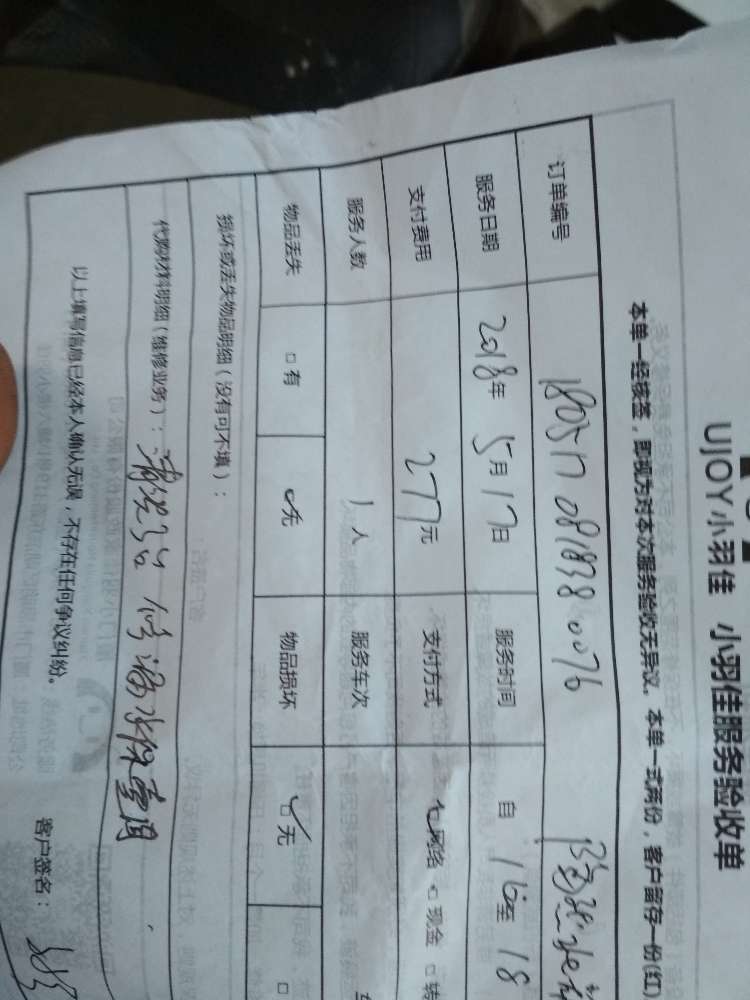 UJOY小羽佳 小羽佳服务验收单
本单一经核签，即视为对本次服务验收无异议。本单一式两份，客户留存一份(红)
订单编号 180517 081838 0076
服务日期 2018年 5月 17日 服务时间 自 16至 18
支付费用 277元 支付方式 网络 □现金 □转
服务人数 1人 服务车次
物品丢失 □有 无 物品损坏 □无 □
损坏或丢失物品明细（没有可不填）：
代购材料明细（维修业务）：
以上填写信息已经本人确认无误，不存在任何争议纠纷。 客户签名：